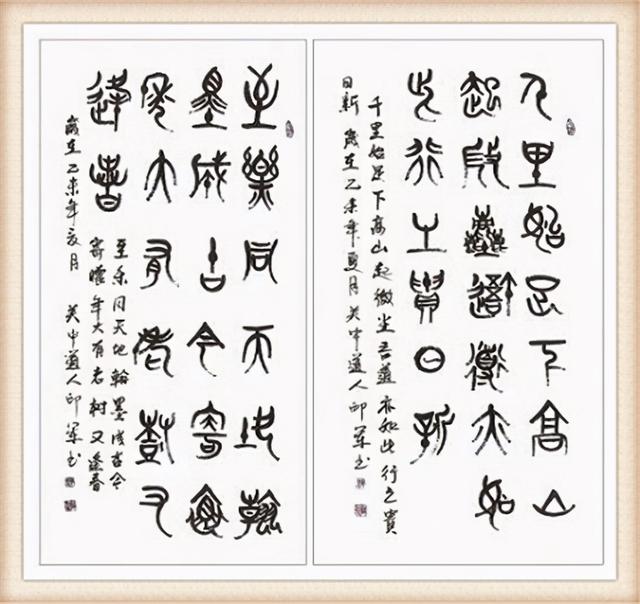 千里始足下高山
起微塵吾道亦如
此行之貴日新
千里始足下高山起微尘吾道亦如此行之貴
日新 歲在乙未年夏月 关中道人印军书
至樂同天地翰
墨成古今寄懷
年大有老樹又
逢春
至乐同天地翰墨成古今
寄懷年大有老樹又逢春
歲在乙未年亥月 关中道人印军书